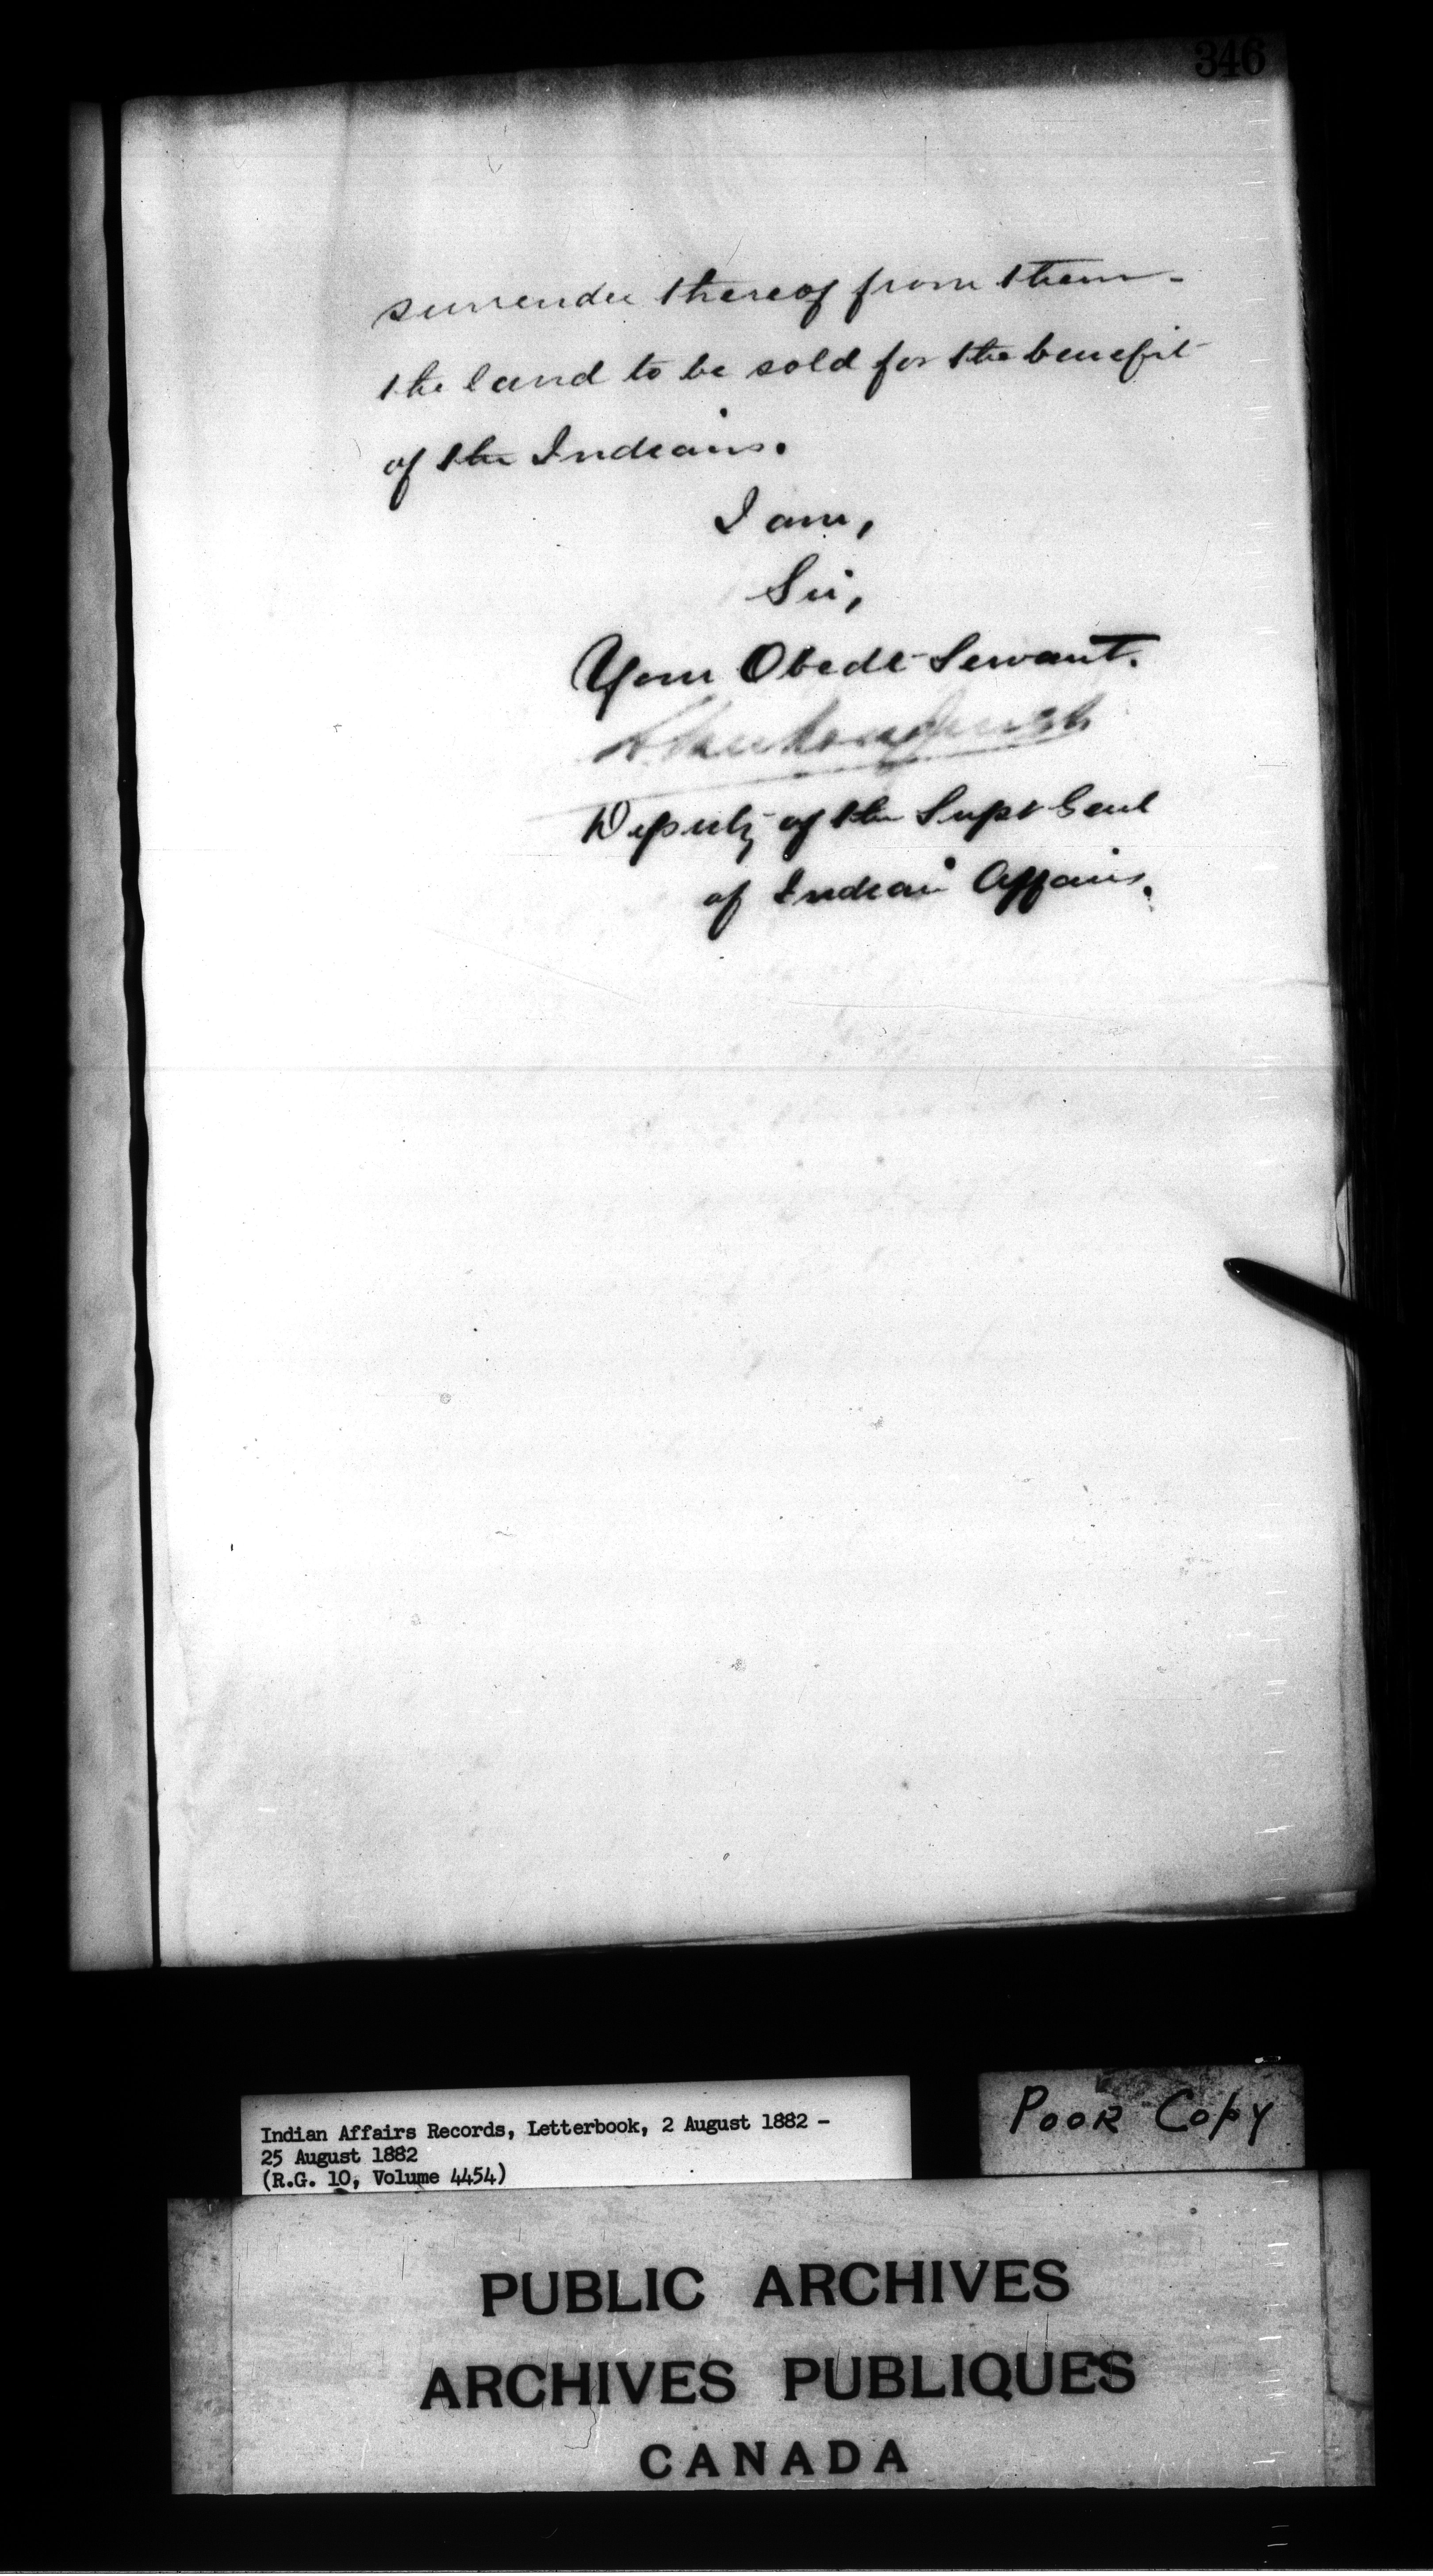 346
surrender thereof from them -
the land to be sold for the benefit
of the Indians.
I am,
Sir,
Your Obedt Servant.
Deputy of the Supt Genl
of Indian Affairs.
Indian Affairs Records, Letterbook, 2 August 1882 -
25 August 1882
(R.G. 10, Volume 4454)
POOR COPY
PUBLIC ARCHIVES
ARCHIVES PUBLIQUES
CANADA